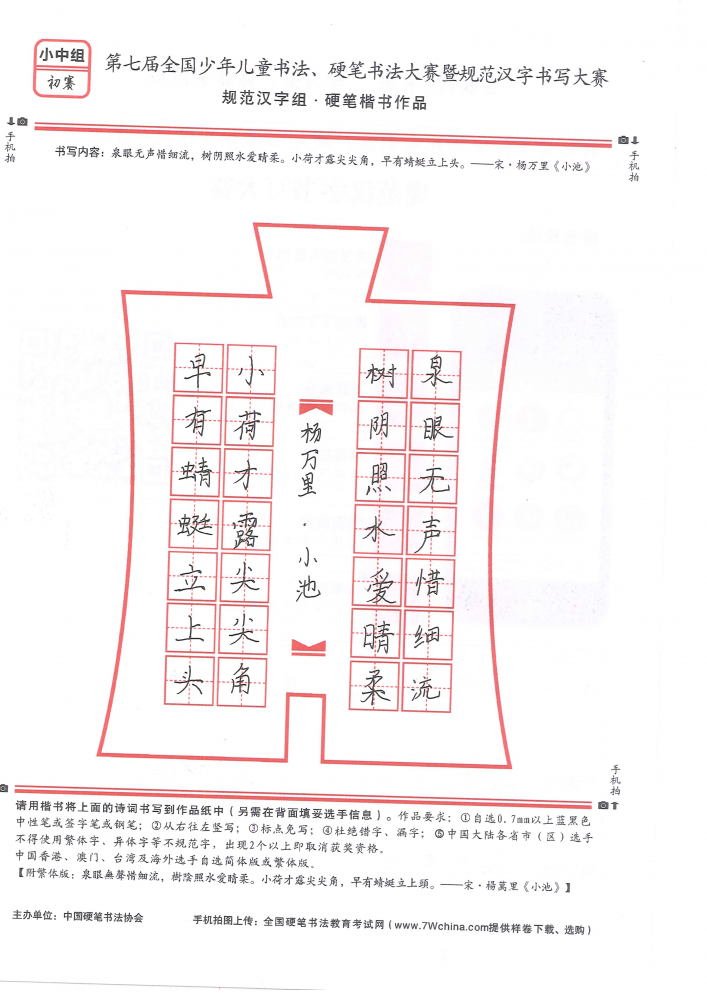 小中组
初赛
第七届全国少年儿童书法、硬笔书法大赛暨规范汉字书写大赛
规范汉字组·硬笔楷书作品
手机拍
手机拍
书写内容：泉眼无声惜细流，树阴照水爱晴柔。小荷才露尖尖角，早有蜻蜓立上头。——宋·杨万里《小池》
泉眼无声惜细流
树阴照水爱晴柔
杨万里·小池
小荷才露尖尖角
早有蜻蜓立上头
手机拍
请用楷书将上面的诗词书写到作品纸中（另需在背面填妥选手信息）。作品要求：①自选0.7mm以上蓝黑色
中性笔或签字笔或钢笔；②从右往左竖写；③标点免写；④杜绝错字、漏字；⑤中国大陆各省市（区）选手
不得使用繁体字、异体字等不规范字，出现2个以上即取消获奖资格。
中国香港、澳门、台湾及海外选手自选简体版或繁体版。
【附繁体版：泉眼無聲惜细流，樹陰照水爱晴柔。小荷才露尖尖角，早有蜻蜓立上頭。——宋·楊萬里《小池》】
主办单位：中国硬笔书法协会
手机拍图上传：全国硬笔书法教育考试网（www.7Wchina.com提供样卷下载、选购）